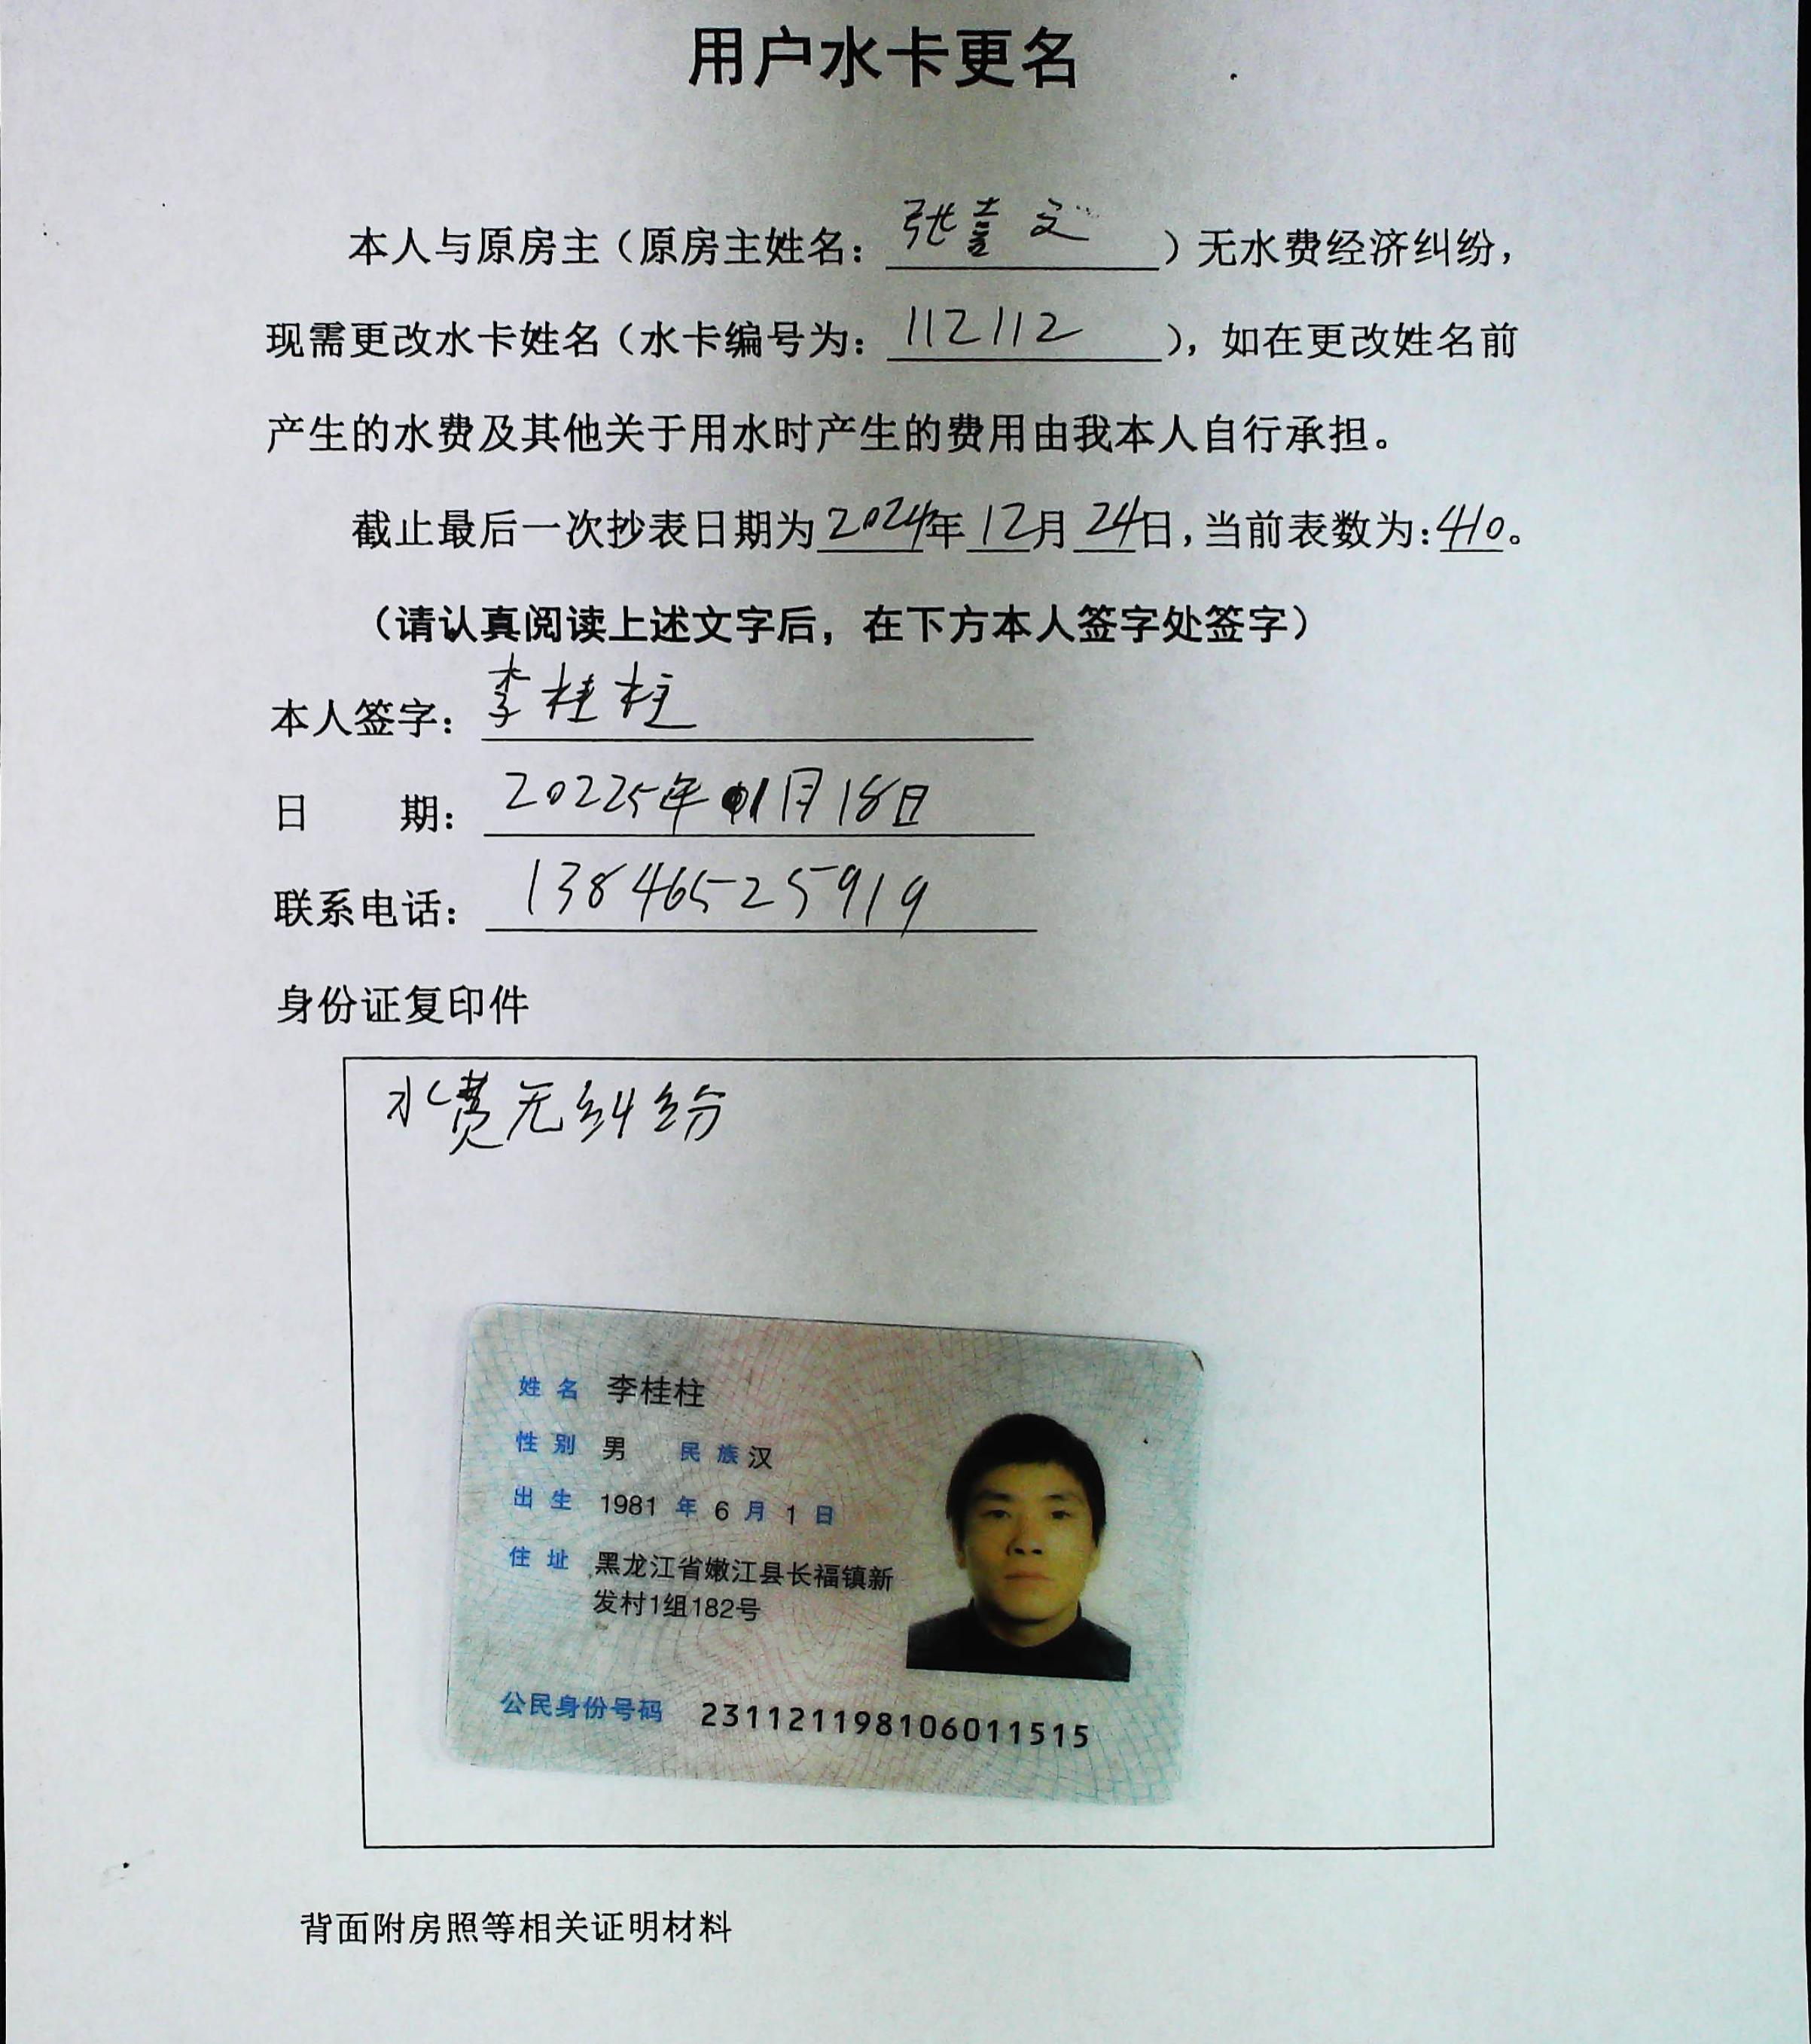 用户水卡更名
本人与原房主（原房主姓名：张喜文）无水费经济纠纷，
现需更改水卡姓名（水卡编号为：112112），如在更改姓名前
产生的水费及其他关于用水时产生的费用由我本人自行承担。
截止最后一次抄表日期为2024年12月24日，当前表数为：410。
（请认真阅读上述文字后，在下方本人签字处签字）
本人签字：李桂柱
日 期：20225年01月18日
联系电话：13846525919
身份证复印件
水费无纠纷
姓名 李桂柱
性别 男 民族 汉
出生 1981 年 6 月 1 日
住址 黑龙江省嫩江县长福镇新
发村1组182号
公民身份号码 231121198106011515
背面附房照等相关证明材料